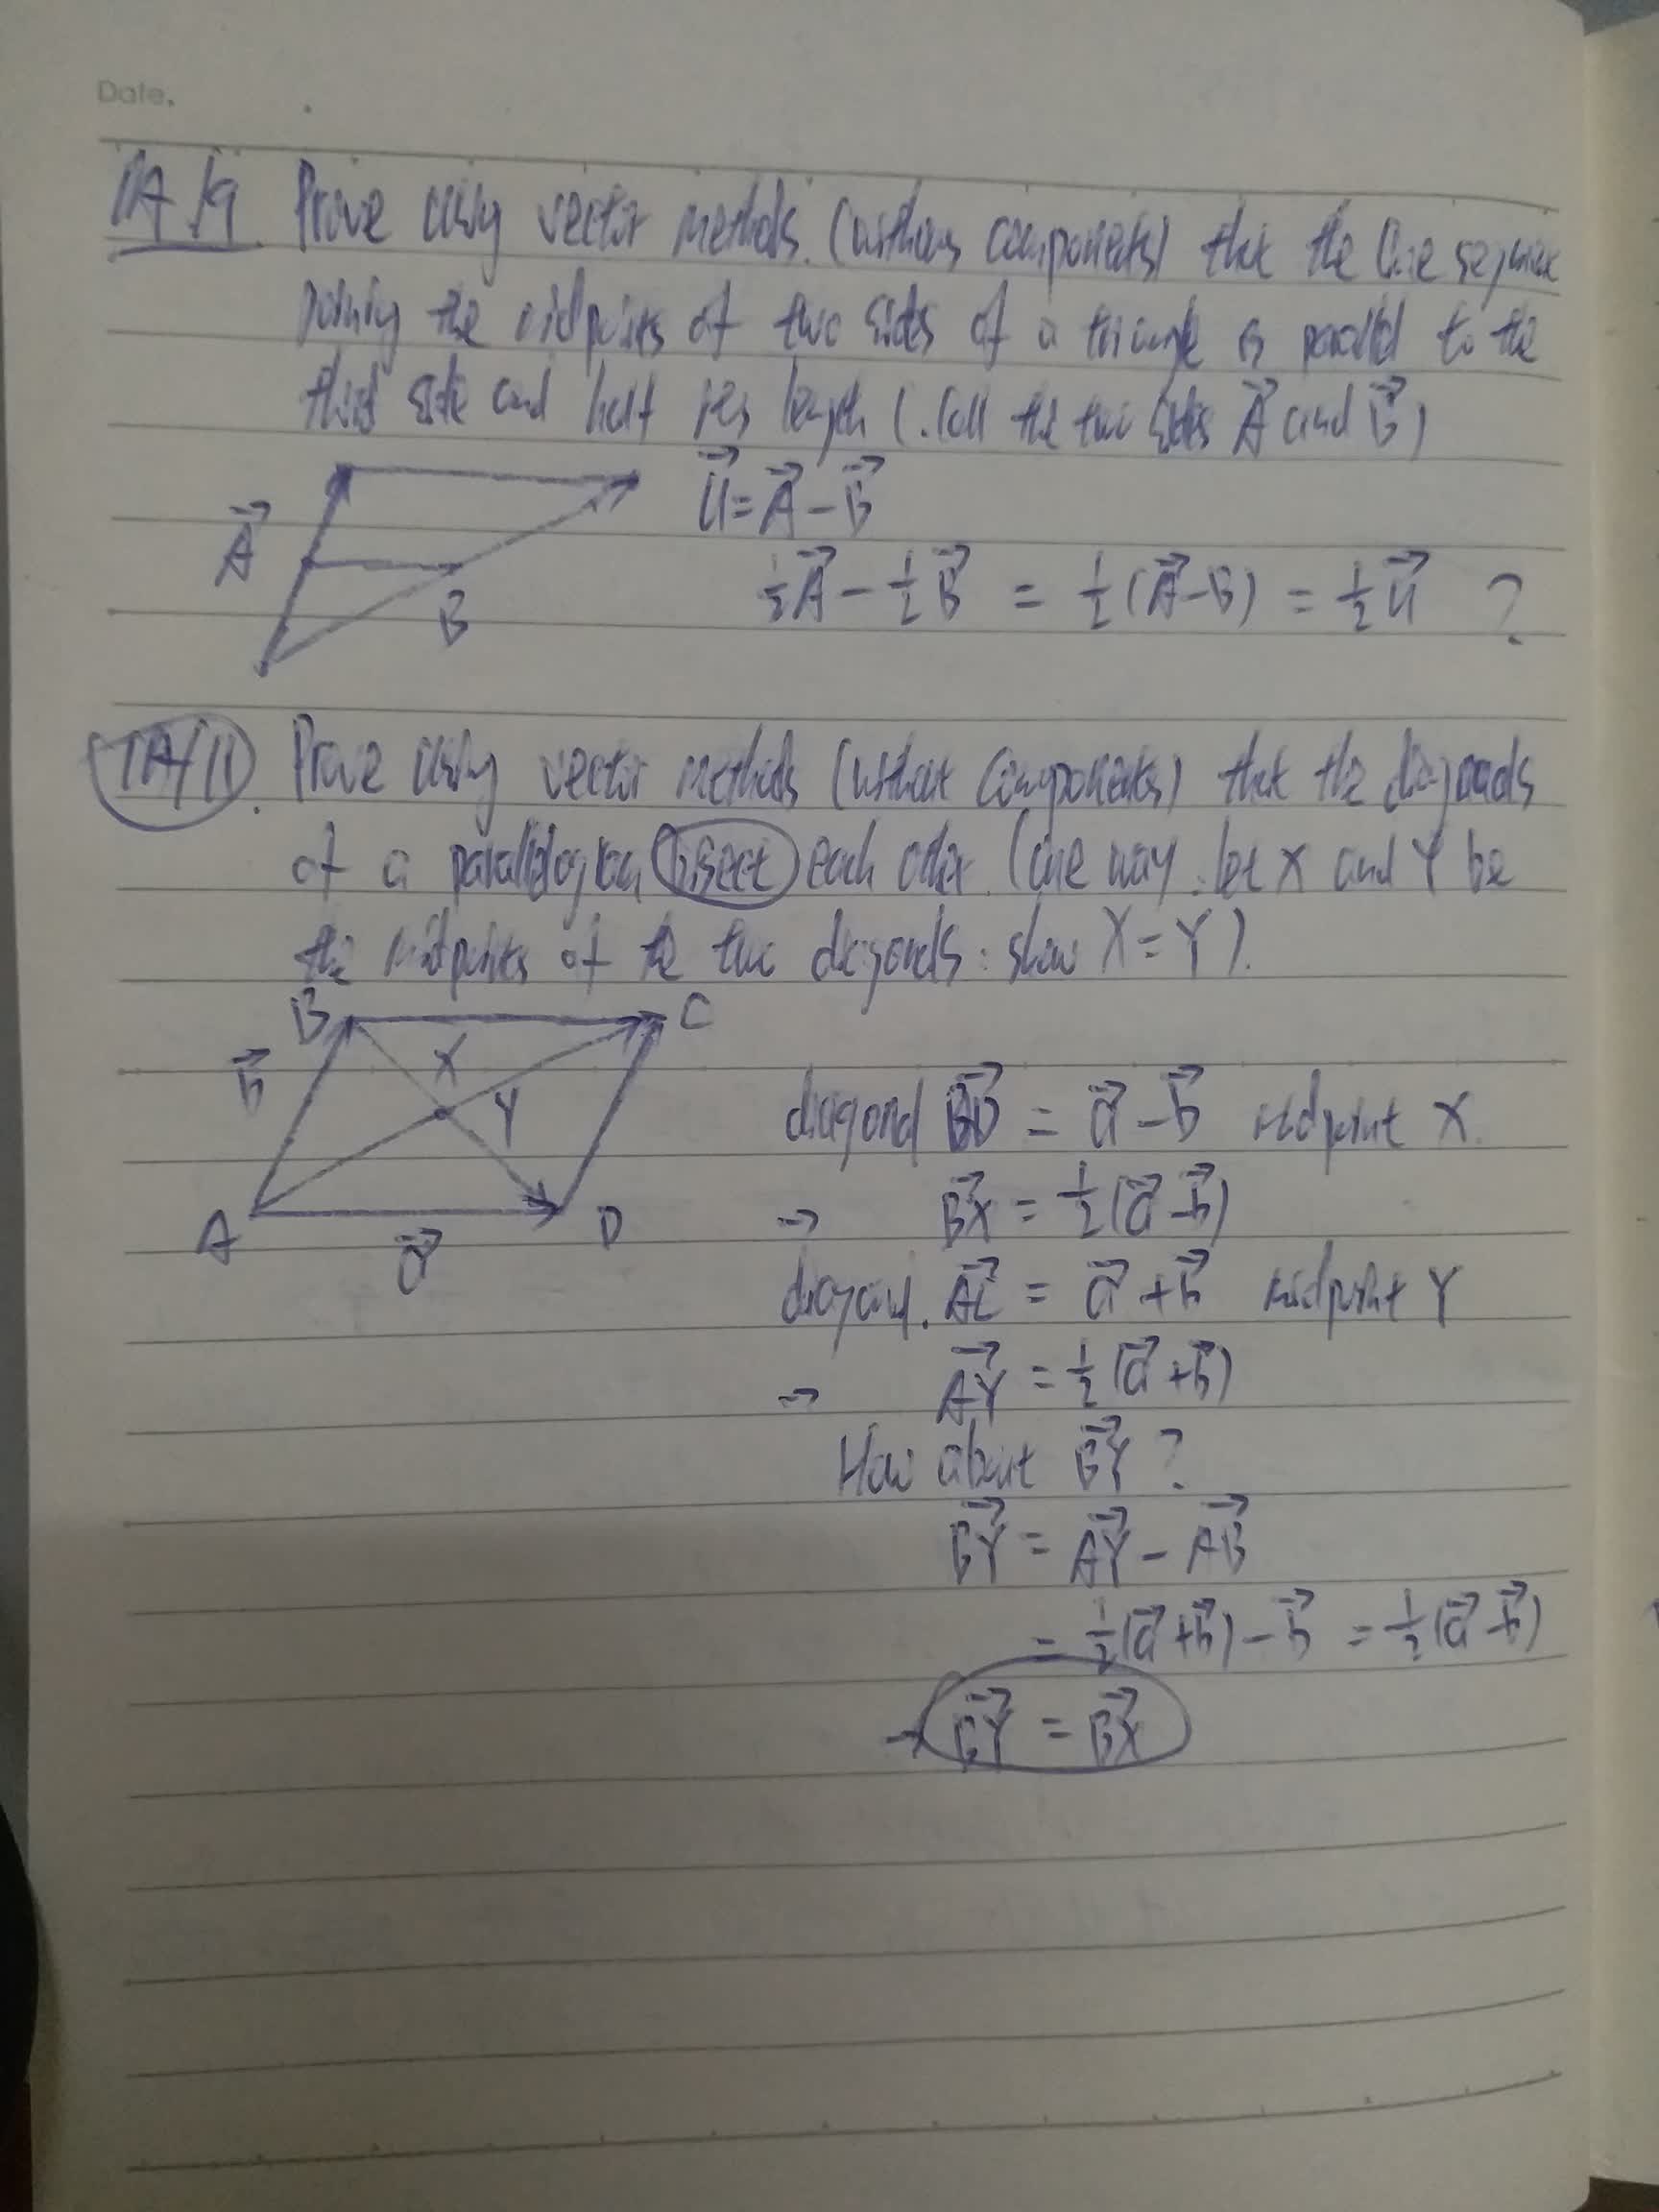 Date.
1A/9 Prove using vector methods (without components) that the line segment
joining the midpoints of two sides of a triangle is parallel to the
third side and half its length (. Call the two sides A⃗ and B⃗)
A⃗
B
U⃗ = A⃗ - B⃗
½A⃗ - ½B⃗ = ½(A⃗-B) = ½U⃗ ?
1A/11. Prove using vector methods (without components) that the diagonals
of a parallelogram bisect each other. (one way: let X and Y be
the midpoints of the two diagonals: show X = Y).
B C
b⃗ X
Y
A a⃗ D
diagonal BD⃗ = a⃗ - b⃗ midpoint X.
→ BX⃗ = ½(a⃗-b⃗)
diagonal. AC⃗ = a⃗ + b⃗ midpoint Y
→ AY⃗ = ½(a⃗+b⃗)
How about BY⃗ ?
BY⃗ = AY⃗ - AB⃗
= ½(a⃗+b⃗) - b⃗ = ½(a⃗-b⃗)
→ BY⃗ = BX⃗